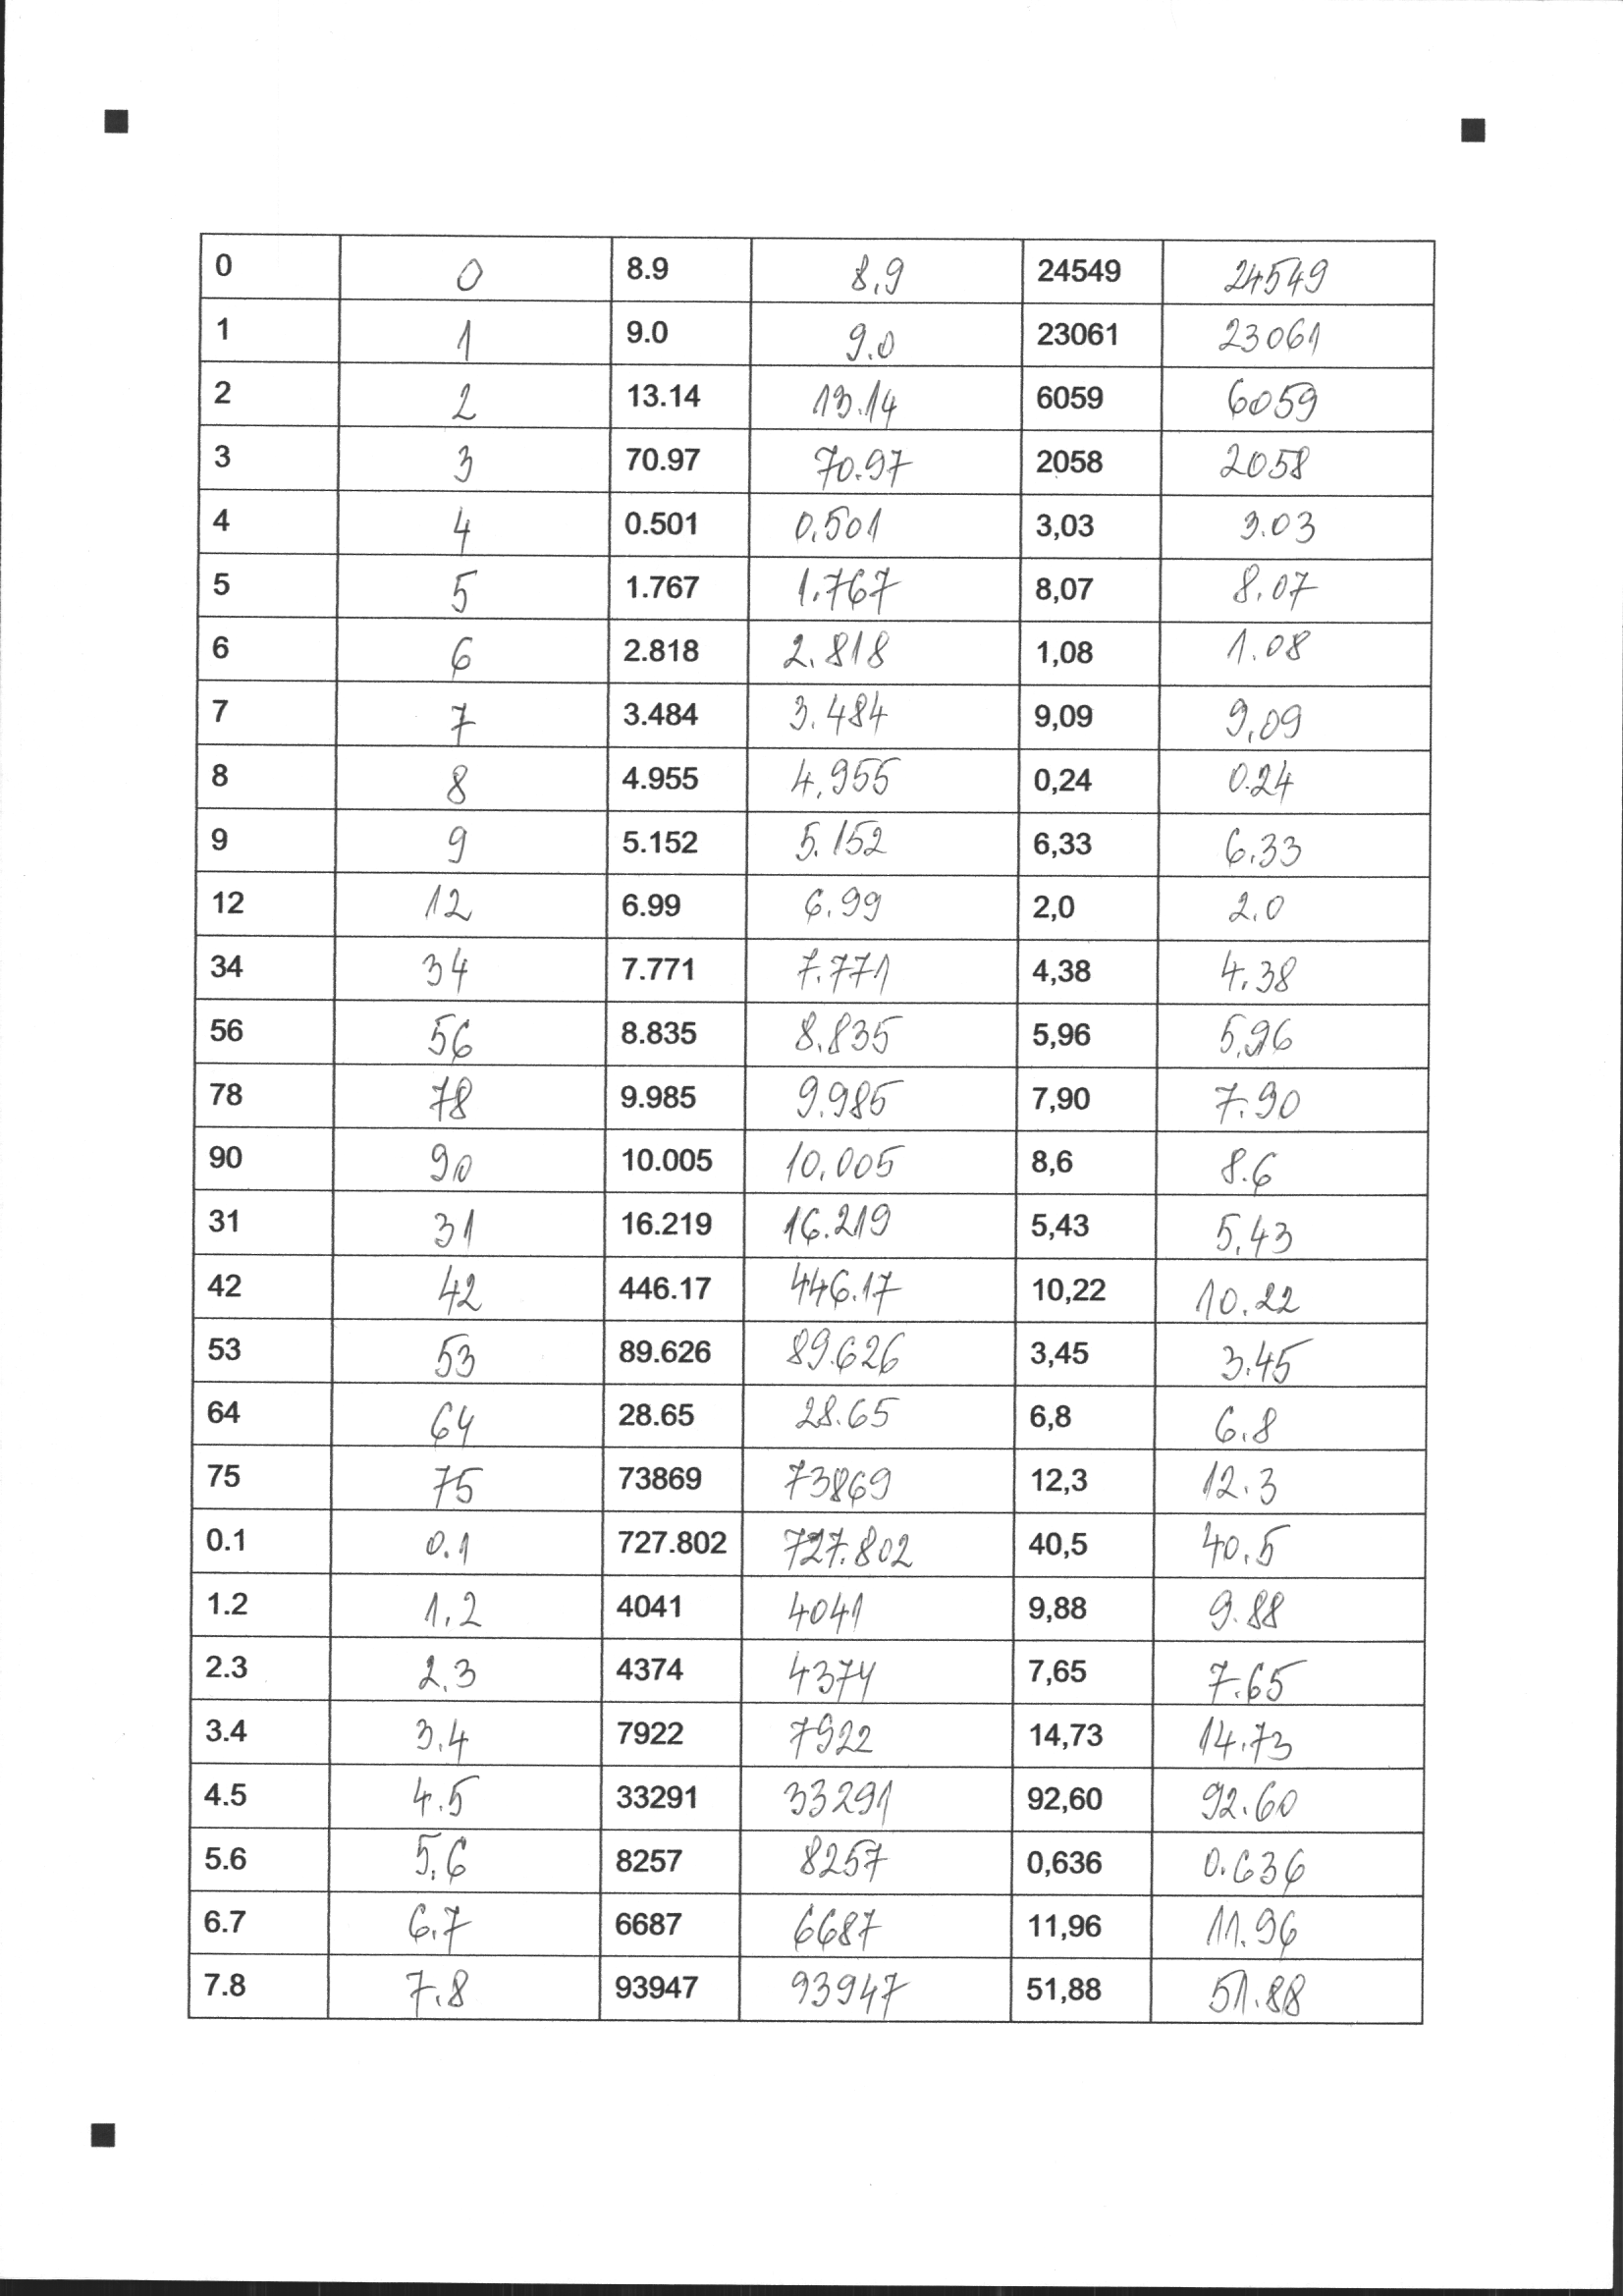 0 0 8.9 8,9 24549 24549
1 1 9.0 9.0 23061 23061
2 2 13.14 13.14 6059 6059
3 3 70.97 70.97 2058 2058
4 4 0.501 0,501 3,03 3.03
5 5 1.767 1.767 8,07 8.07
6 6 2.818 2.818 1,08 1.08
7 7 3.484 3.484 9,09 9,09
8 8 4.955 4,955 0,24 0.24
9 9 5.152 5.152 6,33 6.33
12 12 6.99 6.99 2,0 2.0
34 34 7.771 7.771 4,38 4.38
56 56 8.835 8.835 5,96 5,96
78 78 9.985 9.985 7,90 7.90
90 90 10.005 10,005 8,6 8.6
31 31 16.219 16.219 5,43 5,43
42 42 446.17 446.17 10,22 10.22
53 53 89.626 89.626 3,45 3.45
64 64 28.65 28.65 6,8 6.8
75 75 73869 73869 12,3 12.3
0.1 0.1 727.802 727.802 40,5 40.5
1.2 1.2 4041 4041 9,88 9.88
2.3 2.3 4374 4374 7,65 7.65
3.4 3.4 7922 7922 14,73 14.73
4.5 4.5 33291 33291 92,60 92.60
5.6 5.6 8257 8257 0,636 0.636
6.7 6.7 6687 6687 11,96 11.96
7.8 7.8 93947 93947 51,88 51.88